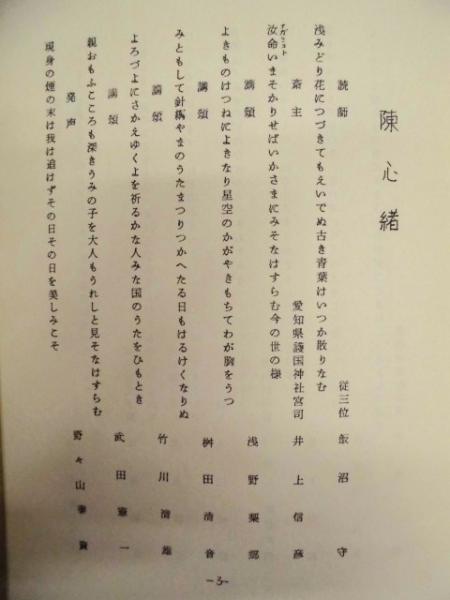 陳心緒
読師　従三位　飯沼　守
浅みどり花につづきてもえいでぬ古き青葉はいつか散りなむ
斎主　愛知県護国神社宮司　井上信彦
ナガミコト
汝命いまそかりせばいかさまにみそなはすらむ今の世の様
講頌　浅野
よきものはつねによきなり星空のかがやきもちてわが胸をうつ
講頌　桝田清音
みともして針綱やまのうたまつりつかへたる日もはるけくなりぬ
講頌　竹川清雄
よろづよにさかえゆくよを祈るかな人みな国のうたをひもとき
講頌　武田憲一
親おもふこころも深きうみの子を大人もうれしと見そなはすらむ
発声　野々山
現身の煙の末は我は追はずその日その日を美しみこそ
-3-